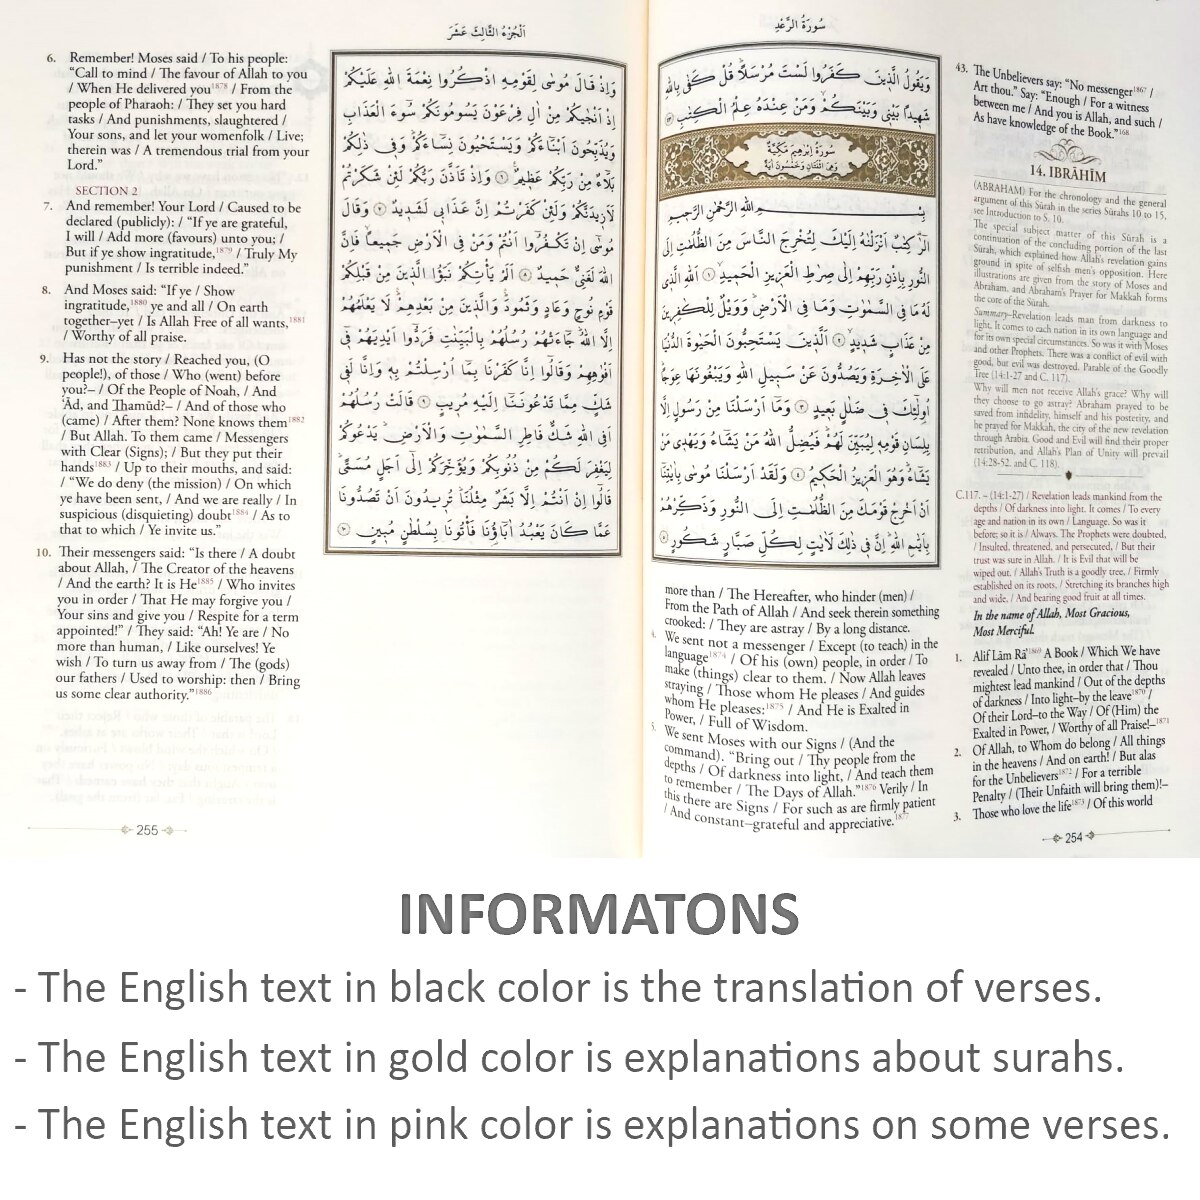 سُورَةُ الرَّعْدِ
وَيَقُولُ الَّذِينَ كَفَرُوا لَسْتَ مُرْسَلًا قُلْ كَفٰى بِاللهِ
شَهِيدًا بَيْنِي وَبَيْنَكُمْ وَمَنْ عِنْدَهُ عِلْمُ الْكِتٰبِ ﴿٤٣﴾
سُورَةُ اِبْرٰهِيمَ مَكِّيَّةٌ
وَهِيَ اثْنَتَانِ وَخَمْسُونَ اٰيَةً
بِسْمِ اللهِ الرَّحْمٰنِ الرَّحِيمِ
الٓرٰ كِتٰبٌ اَنْزَلْنٰهُ اِلَيْكَ لِتُخْرِجَ النَّاسَ مِنَ الظُّلُمٰتِ اِلَى
النُّورِ بِاِذْنِ رَبِّهِمْ اِلٰى صِرَاطِ الْعَزِيزِ الْحَمِيدِ ﴿١﴾ اَللهِ الَّذِي
لَهُ مَا فِي السَّمٰوٰتِ وَمَا فِي الْاَرْضِ وَوَيْلٌ لِلْكٰفِرِينَ
مِنْ عَذَابٍ شَدِيدٍ ﴿٢﴾ اَلَّذِينَ يَسْتَحِبُّونَ الْحَيٰوةَ الدُّنْيَا
عَلَى الْاٰخِرَةِ وَيَصُدُّونَ عَنْ سَبِيلِ اللهِ وَيَبْغُونَهَا عِوَجًا
اُولٰئِكَ فِي ضَلَالٍ بَعِيدٍ ﴿٣﴾ وَمَا اَرْسَلْنَا مِنْ رَسُولٍ اِلَّا
بِلِسَانِ قَوْمِهِ لِيُبَيِّنَ لَهُمْ فَيُضِلُّ اللهُ مَنْ يَشَاءُ وَيَهْدِي مَنْ
يَشَاءُ وَهُوَ الْعَزِيزُ الْحَكِيمُ ﴿٤﴾ وَلَقَدْ اَرْسَلْنَا مُوسٰى بِاٰيٰتِنَا
اَنْ اَخْرِجْ قَوْمَكَ مِنَ الظُّلُمٰتِ اِلَى النُّورِ وَذَكِّرْهُمْ
بِاَيَّامِ اللهِ اِنَّ فِي ذٰلِكَ لَاٰيٰتٍ لِكُلِّ صَبَّارٍ شَكُورٍ ﴿٥﴾
43. The Unbelievers say: "No messenger1867 /
Art thou." Say: "Enough / For a witness
between me / And you is Allah, and such /
As have knowledge of the Book."168
14. IBRĀHĪM
(ABRAHAM) For the chronology and the general
argument of this Sūrah in the series Sūrahs 10 to 15,
see Introduction to S. 10.
The special subject matter of this Sūrah is a
continuation of the concluding portion of the last
Sūrah, which explained how Allah's revelation gains
ground in spite of selfish men's opposition. Here
illustrations are given from the story of Moses and
Abraham, and Abraham's Prayer for Makkah forms
the core of the Sūrah.
Summary–Revelation leads man from darkness to
light. It comes to each nation in its own language and
for its own special circumstances. So was it with Moses
and other Prophets. There was a conflict of evil with
good, but evil was destroyed. Parable of the Goodly
Tree (14:1-27 and C. 117).
Why will men not receive Allah's grace? Why will
they choose to go astray? Abraham prayed to be
saved from infidelity, himself and his posterity, and
he prayed for Makkah, the city of the new revelation
through Arabia. Good and Evil will find their proper
retribution, and Allah's Plan of Unity will prevail
(14:28-52. and C. 118).
C.117. – (14:1-27) / Revelation leads mankind from the
depths / Of darkness into light. It comes / To every
age and nation in its own / Language. So was it
before; so it is / Always. The Prophets were doubted,
/ Insulted, threatened, and persecuted, / But their
trust was sure in Allah. / It is Evil that will be
wiped out. / Allah's Truth is a goodly tree, / Firmly
established on its roots, / Stretching its branches high
and wide, / And bearing good fruit at all times.
In the name of Allah, Most Gracious,
Most Merciful.
1. Alif Lām Rā1869 A Book / Which We have
revealed / Unto thee, in order that / Thou
mightest lead mankind / Out of the depths
of darkness / Into light–by the leave1870 /
Of their Lord–to the Way / Of (Him) the
Exalted in Power, / Worthy of all Praise!–1871
2. Of Allah, to Whom do belong / All things
in the heavens / And on earth! / But alas
for the Unbelievers1872 / For a terrible
Penalty / (Their Unfaith will bring them)!–
3. Those who love the life1873 / Of this world
more than / The Hereafter, who hinder (men) /
From the Path of Allah / And seek therein something
crooked: / They are astray / By a long distance.
4. We sent not a messenger / Except (to teach) in the
language1874 / Of his (own) people, in order / To
make (things) clear to them. / Now Allah leaves
straying / Those whom He pleases / And guides
whom He pleases:1875 / And He is Exalted in
Power, / Full of Wisdom.
5. We sent Moses with our Signs / (And the
command). "Bring out / Thy people from the
depths / Of darkness into light, / And teach them
to remember / The Days of Allah."1876 Verily / In
this there are Signs / For such as are firmly patient
/ And constant–grateful and appreciative.1877
254
اَلْجُزْءُ الثَّالِثَ عَشَرَ
وَاِذْ قَالَ مُوسٰى لِقَوْمِهِ اذْكُرُوا نِعْمَةَ اللهِ عَلَيْكُمْ
اِذْ اَنْجٰيكُمْ مِنْ اٰلِ فِرْعَوْنَ يَسُومُونَكُمْ سُوءَ الْعَذَابِ
وَيُذَبِّحُونَ اَبْنَاءَكُمْ وَيَسْتَحْيُونَ نِسَاءَكُمْ وَفِي ذٰلِكُمْ
بَلَاءٌ مِنْ رَبِّكُمْ عَظِيمٌ ﴿٦﴾ وَاِذْ تَاَذَّنَ رَبُّكُمْ لَئِنْ شَكَرْتُمْ
لَاَزِيدَنَّكُمْ وَلَئِنْ كَفَرْتُمْ اِنَّ عَذَابِي لَشَدِيدٌ ﴿٧﴾ وَقَالَ
مُوسٰى اِنْ تَكْفُرُوا اَنْتُمْ وَمَنْ فِي الْاَرْضِ جَمِيعًا فَاِنَّ
اللهَ لَغَنِيٌّ حَمِيدٌ ﴿٨﴾ اَلَمْ يَأْتِكُمْ نَبَؤُا الَّذِينَ مِنْ قَبْلِكُمْ
قَوْمِ نُوحٍ وَعَادٍ وَثَمُودَ وَالَّذِينَ مِنْ بَعْدِهِمْ لَا يَعْلَمُهُمْ
اِلَّا اللهُ جَاءَتْهُمْ رُسُلُهُمْ بِالْبَيِّنَاتِ فَرَدُّوا اَيْدِيَهُمْ فِي
اَفْوَاهِهِمْ وَقَالُوا اِنَّا كَفَرْنَا بِمَا اُرْسِلْتُمْ بِهِ وَاِنَّا لَفِي
شَكٍّ مِمَّا تَدْعُونَنَا اِلَيْهِ مُرِيبٍ ﴿٩﴾ قَالَتْ رُسُلُهُمْ
اَفِي اللهِ شَكٌّ فَاطِرِ السَّمٰوٰتِ وَالْاَرْضِ يَدْعُوكُمْ
لِيَغْفِرَ لَكُمْ مِنْ ذُنُوبِكُمْ وَيُؤَخِّرَكُمْ اِلٰى اَجَلٍ مُسَمًّى
قَالُوا اِنْ اَنْتُمْ اِلَّا بَشَرٌ مِثْلُنَا تُرِيدُونَ اَنْ تَصُدُّونَا
عَمَّا كَانَ يَعْبُدُ اٰبَاؤُنَا فَأْتُونَا بِسُلْطَانٍ مُبِينٍ ﴿١٠﴾
6. Remember! Moses said / To his people:
"Call to mind / The favour of Allah to you
/ When He delivered you1878 / From the
people of Pharaoh: / They set you hard
tasks / And punishments, slaughtered /
Your sons, and let your womenfolk / Live;
therein was / A tremendous trial from your
Lord."
SECTION 2
7. And remember! Your Lord / Caused to be
declared (publicly): / "If ye are grateful,
I will / Add more (favours) unto you; /
But if ye show ingratitude,1879 / Truly My
punishment / Is terrible indeed."
8. And Moses said: "If ye / Show
ingratitude,1880 ye and all / On earth
together–yet / Is Allah Free of all wants,1881
/ Worthy of all praise.
9. Has not the story / Reached you, (O
people!), of those / Who (went) before
you?– / Of the People of Noah, / And
ʿĀd, and Thamūd?– / And of those who
(came) / After them? None knows them1882
/ But Allah. To them came / Messengers
with Clear (Signs); / But they put their
hands1883 / Up to their mouths, and said:
/ "We do deny (the mission) / On which
ye have been sent, / And we are really / In
suspicious (disquieting) doubt1884 / As to
that to which / Ye invite us."
10. Their messengers said: "Is there / A doubt
about Allah, / The Creator of the heavens
/ And the earth? It is He1885 / Who invites
you in order / That He may forgive you /
Your sins and give you / Respite for a term
appointed!" / They said: "Ah! Ye are / No
more than human, / Like ourselves! Ye
wish / To turn us away from / The (gods)
our fathers / Used to worship: then / Bring
us some clear authority."1886
255
INFORMATONS
- The English text in black color is the translation of verses.
- The English text in gold color is explanations about surahs.
- The English text in pink color is explanations on some verses.